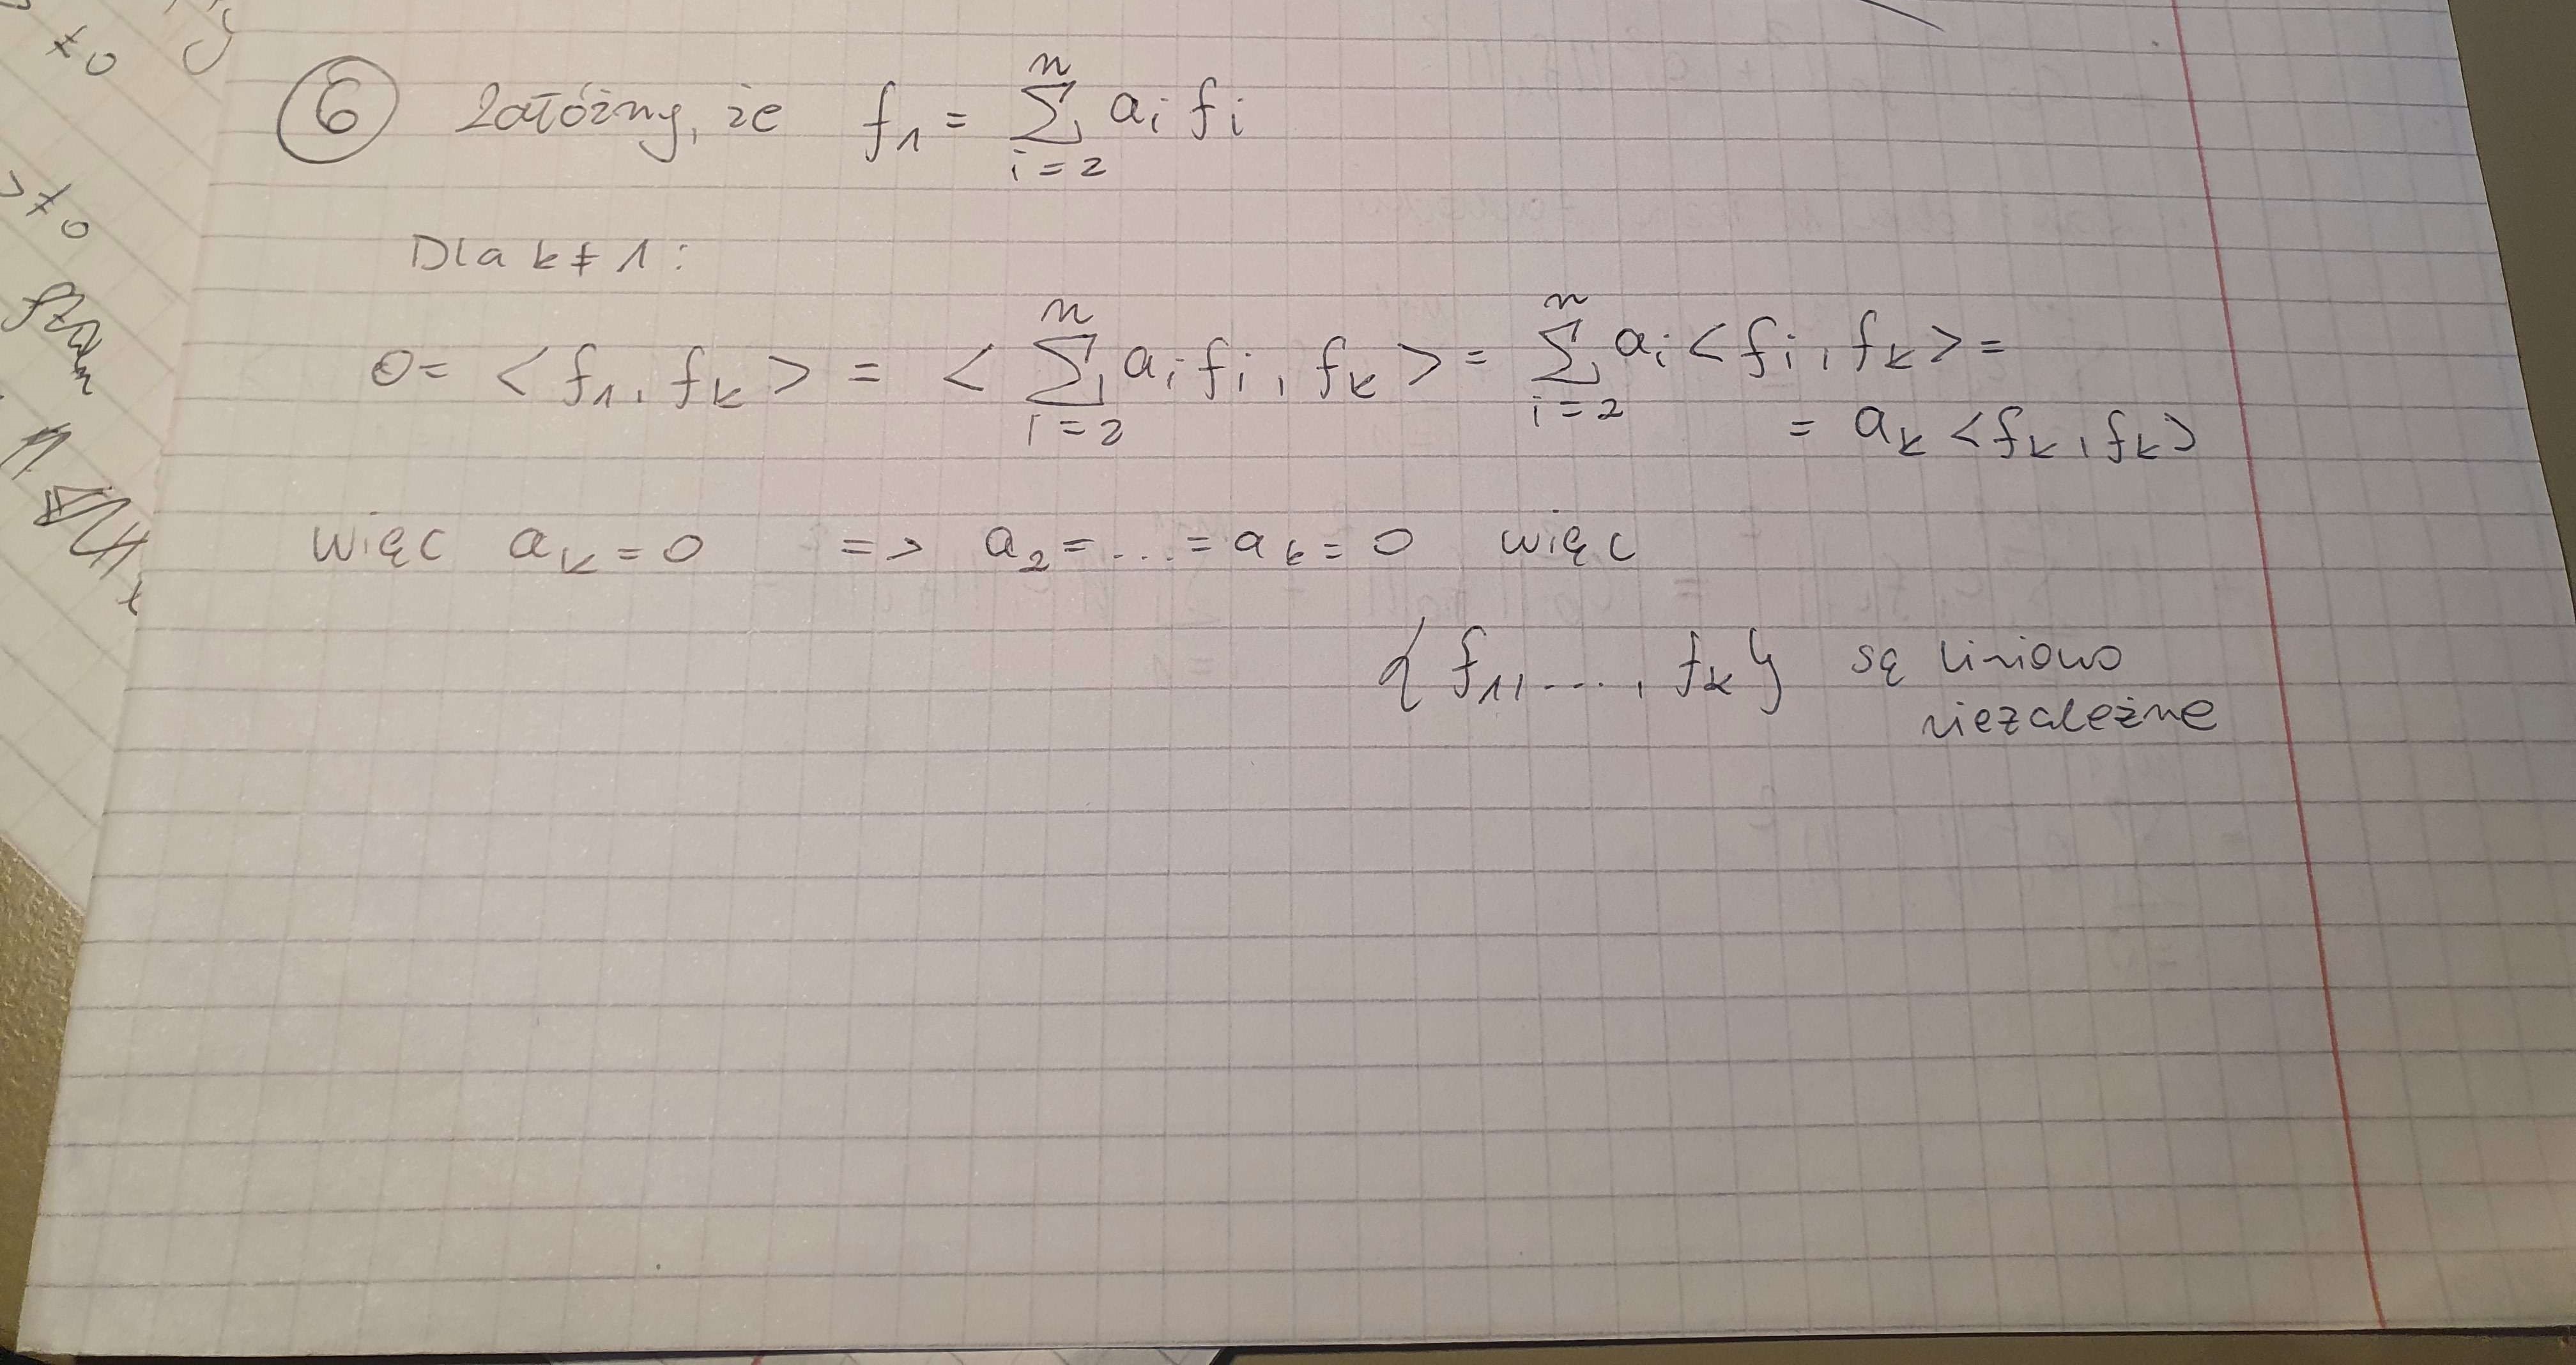 ≠ 0
> ≠ 0
⑥ Załóżmy, że f₁ = ∑_{i=2}^{n} aᵢ fᵢ
Dla k ≠ 1 :
0 = < f₁, f_k > = < ∑_{i=2}^{n} aᵢ fᵢ, f_k > = ∑_{i=2}^{n} aᵢ < fᵢ, f_k > =
= a_k < f_k, f_k >
więc a_k = 0 => a₂ = ... = a_k = 0 więc
{ f₁, ..., f_k } są liniowo
niezależne